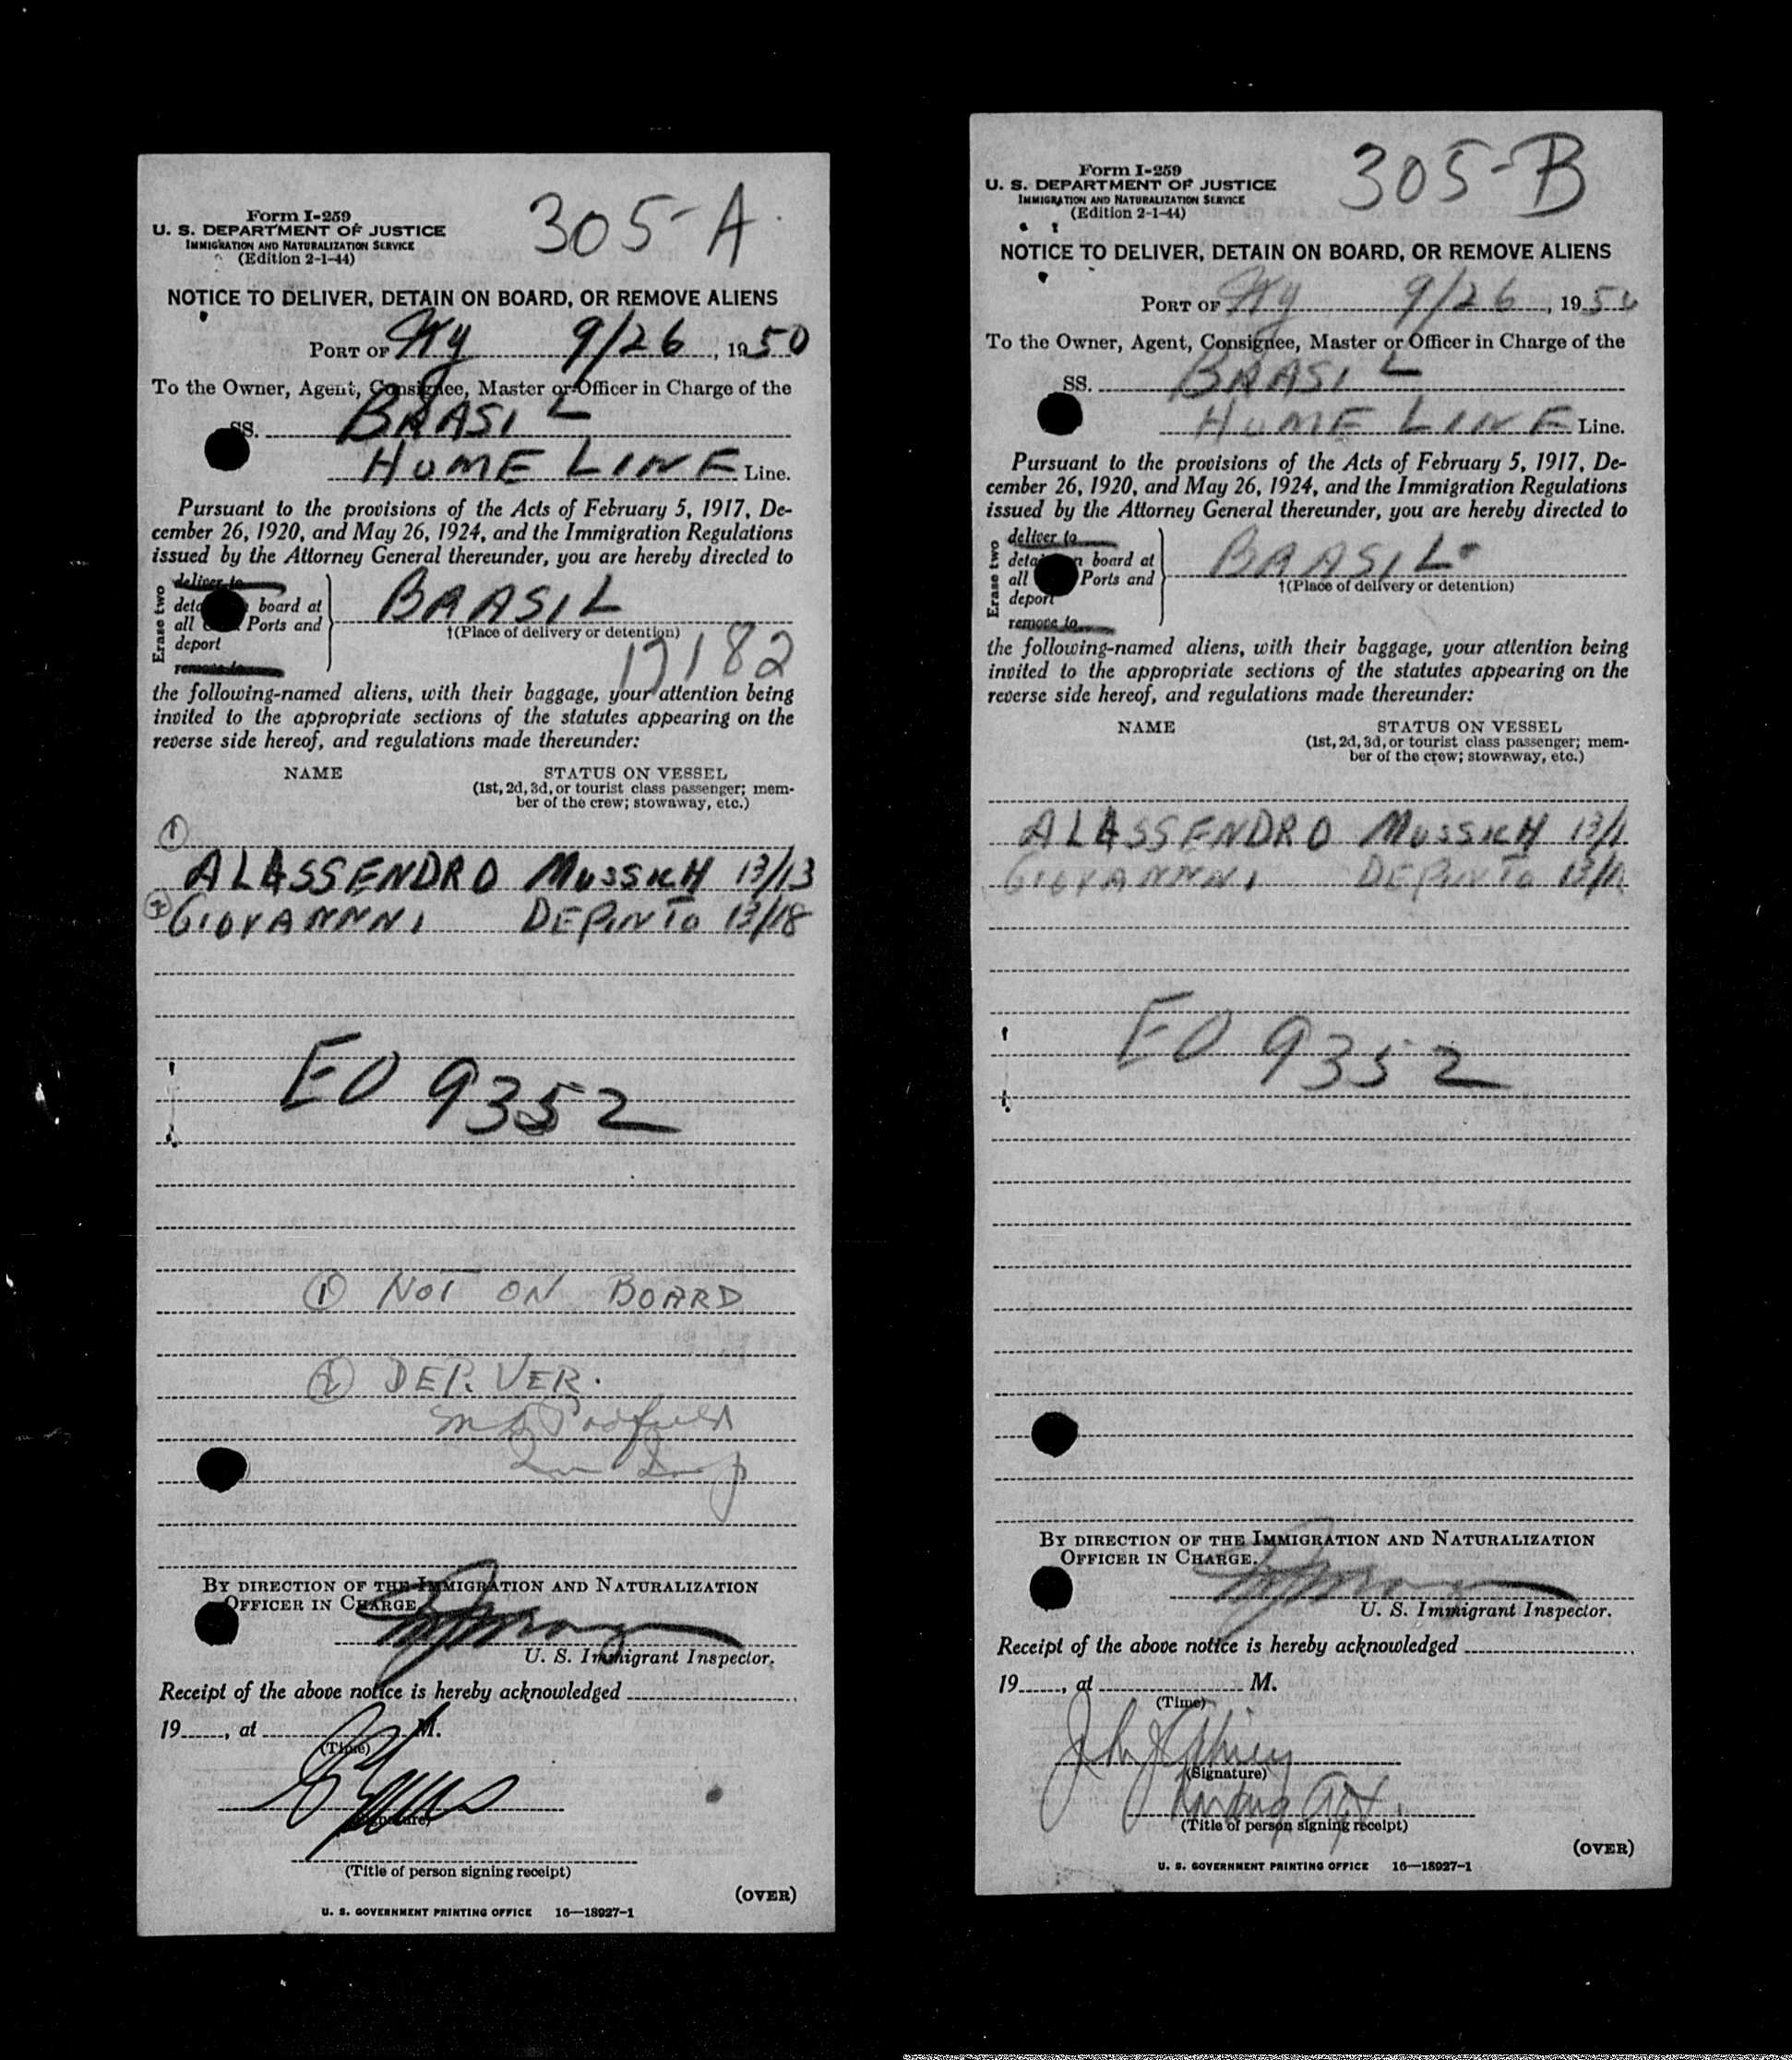 305-A
Form I-259
U. S. DEPARTMENT OF JUSTICE
IMMIGRATION AND NATURALIZATION SERVICE
(Edition 2-1-44)
NOTICE TO DELIVER, DETAIN ON BOARD, OR REMOVE ALIENS
PORT OF NY 9/26, 1950
To the Owner, Agent, Consignee, Master or Officer in Charge of the
SS. BRASIL
HOME LINE Line.
Pursuant to the provisions of the Acts of February 5, 1917, De-
cember 26, 1920, and May 26, 1924, and the Immigration Regulations
issued by the Attorney General thereunder, you are hereby directed to
Erase two
deliver to
board at
all Ports and
deport
remove to
BRASIL
†(Place of delivery or detention)
17182
the following-named aliens, with their baggage, your attention being
invited to the appropriate sections of the statutes appearing on the
reverse side hereof, and regulations made thereunder:
NAME STATUS ON VESSEL
(1st, 2d, 3d, or tourist class passenger; mem-
ber of the crew; stowaway, etc.)
① ALASSENDRO MUSSICH 13/13
② GIOVANNNI DEPINTO 13/18
EO 9352
① NOT ON BOARD
② DEP. VER.
BY DIRECTION OF THE IMMIGRATION AND NATURALIZATION
OFFICER IN CHARGE
U. S. Immigrant Inspector.
Receipt of the above notice is hereby acknowledged
19, at M.
(Time)
(Signature)
(Title of person signing receipt)
(OVER)
U. S. GOVERNMENT PRINTING OFFICE 16—18927-1
305-B
Form I-259
U. S. DEPARTMENT OF JUSTICE
IMMIGRATION AND NATURALIZATION SERVICE
(Edition 2-1-44)
NOTICE TO DELIVER, DETAIN ON BOARD, OR REMOVE ALIENS
PORT OF NY 9/26, 1950
To the Owner, Agent, Consignee, Master or Officer in Charge of the
SS. BRASIL
HOME LINE Line.
Pursuant to the provisions of the Acts of February 5, 1917, De-
cember 26, 1920, and May 26, 1924, and the Immigration Regulations
issued by the Attorney General thereunder, you are hereby directed to
Erase two
deliver to
board at
all Ports and
deport
remove to
BRASIL
†(Place of delivery or detention)
the following-named aliens, with their baggage, your attention being
invited to the appropriate sections of the statutes appearing on the
reverse side hereof, and regulations made thereunder:
NAME STATUS ON VESSEL
(1st, 2d, 3d, or tourist class passenger; mem-
ber of the crew; stowaway, etc.)
ALASSENDRO MUSSICH 13/1
GIOVANNNI DEPINTO 13/1
EO 9352
BY DIRECTION OF THE IMMIGRATION AND NATURALIZATION
OFFICER IN CHARGE.
U. S. Immigrant Inspector.
Receipt of the above notice is hereby acknowledged
19, at M.
(Time)
(Signature)
(Title of person signing receipt)
(OVER)
U. S. GOVERNMENT PRINTING OFFICE 16—18927-1